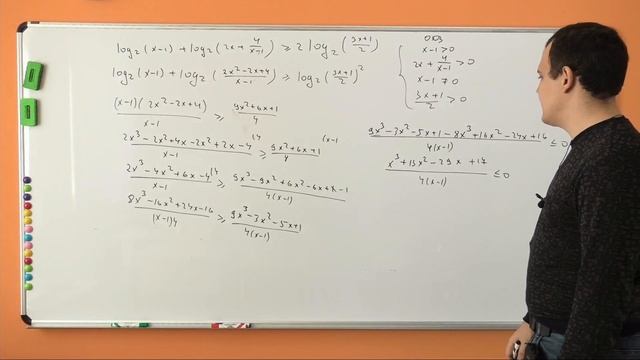 log₂(x-1) + log₂(2x + 4/(x-1)) ≥ 2 log₂((3x+1)/2)
log₂(x-1) + log₂((2x²-2x+4)/(x-1)) ≥ log₂((3x+1)/2)²
(x-1)(2x²-2x+4)/(x-1) ≥ (9x²+6x+1)/4
(2x³-2x²+4x-2x²+2x-4)/(x-1) |4 ≥ (9x²+6x+1)/4 (x-1
(2x³-4x²+6x-4)/(x-1) |4 ≥ (9x³-9x²+6x²-6x+x-1)/(4(x-1))
(8x³-16x²+24x-16)/((x-1)4) ≥ (9x³-3x²-5x+1)/(4(x-1))
ОДЗ
x-1>0
2x + 4/(x-1) > 0
x-1≠0
(3x+1)/2 > 0
(9x³-3x²-5x+1-8x³+16x²-24x+16)/(4(x-1)) ≤ 0
(x³+13x²-29x+17)/(4(x-1)) ≤ 0